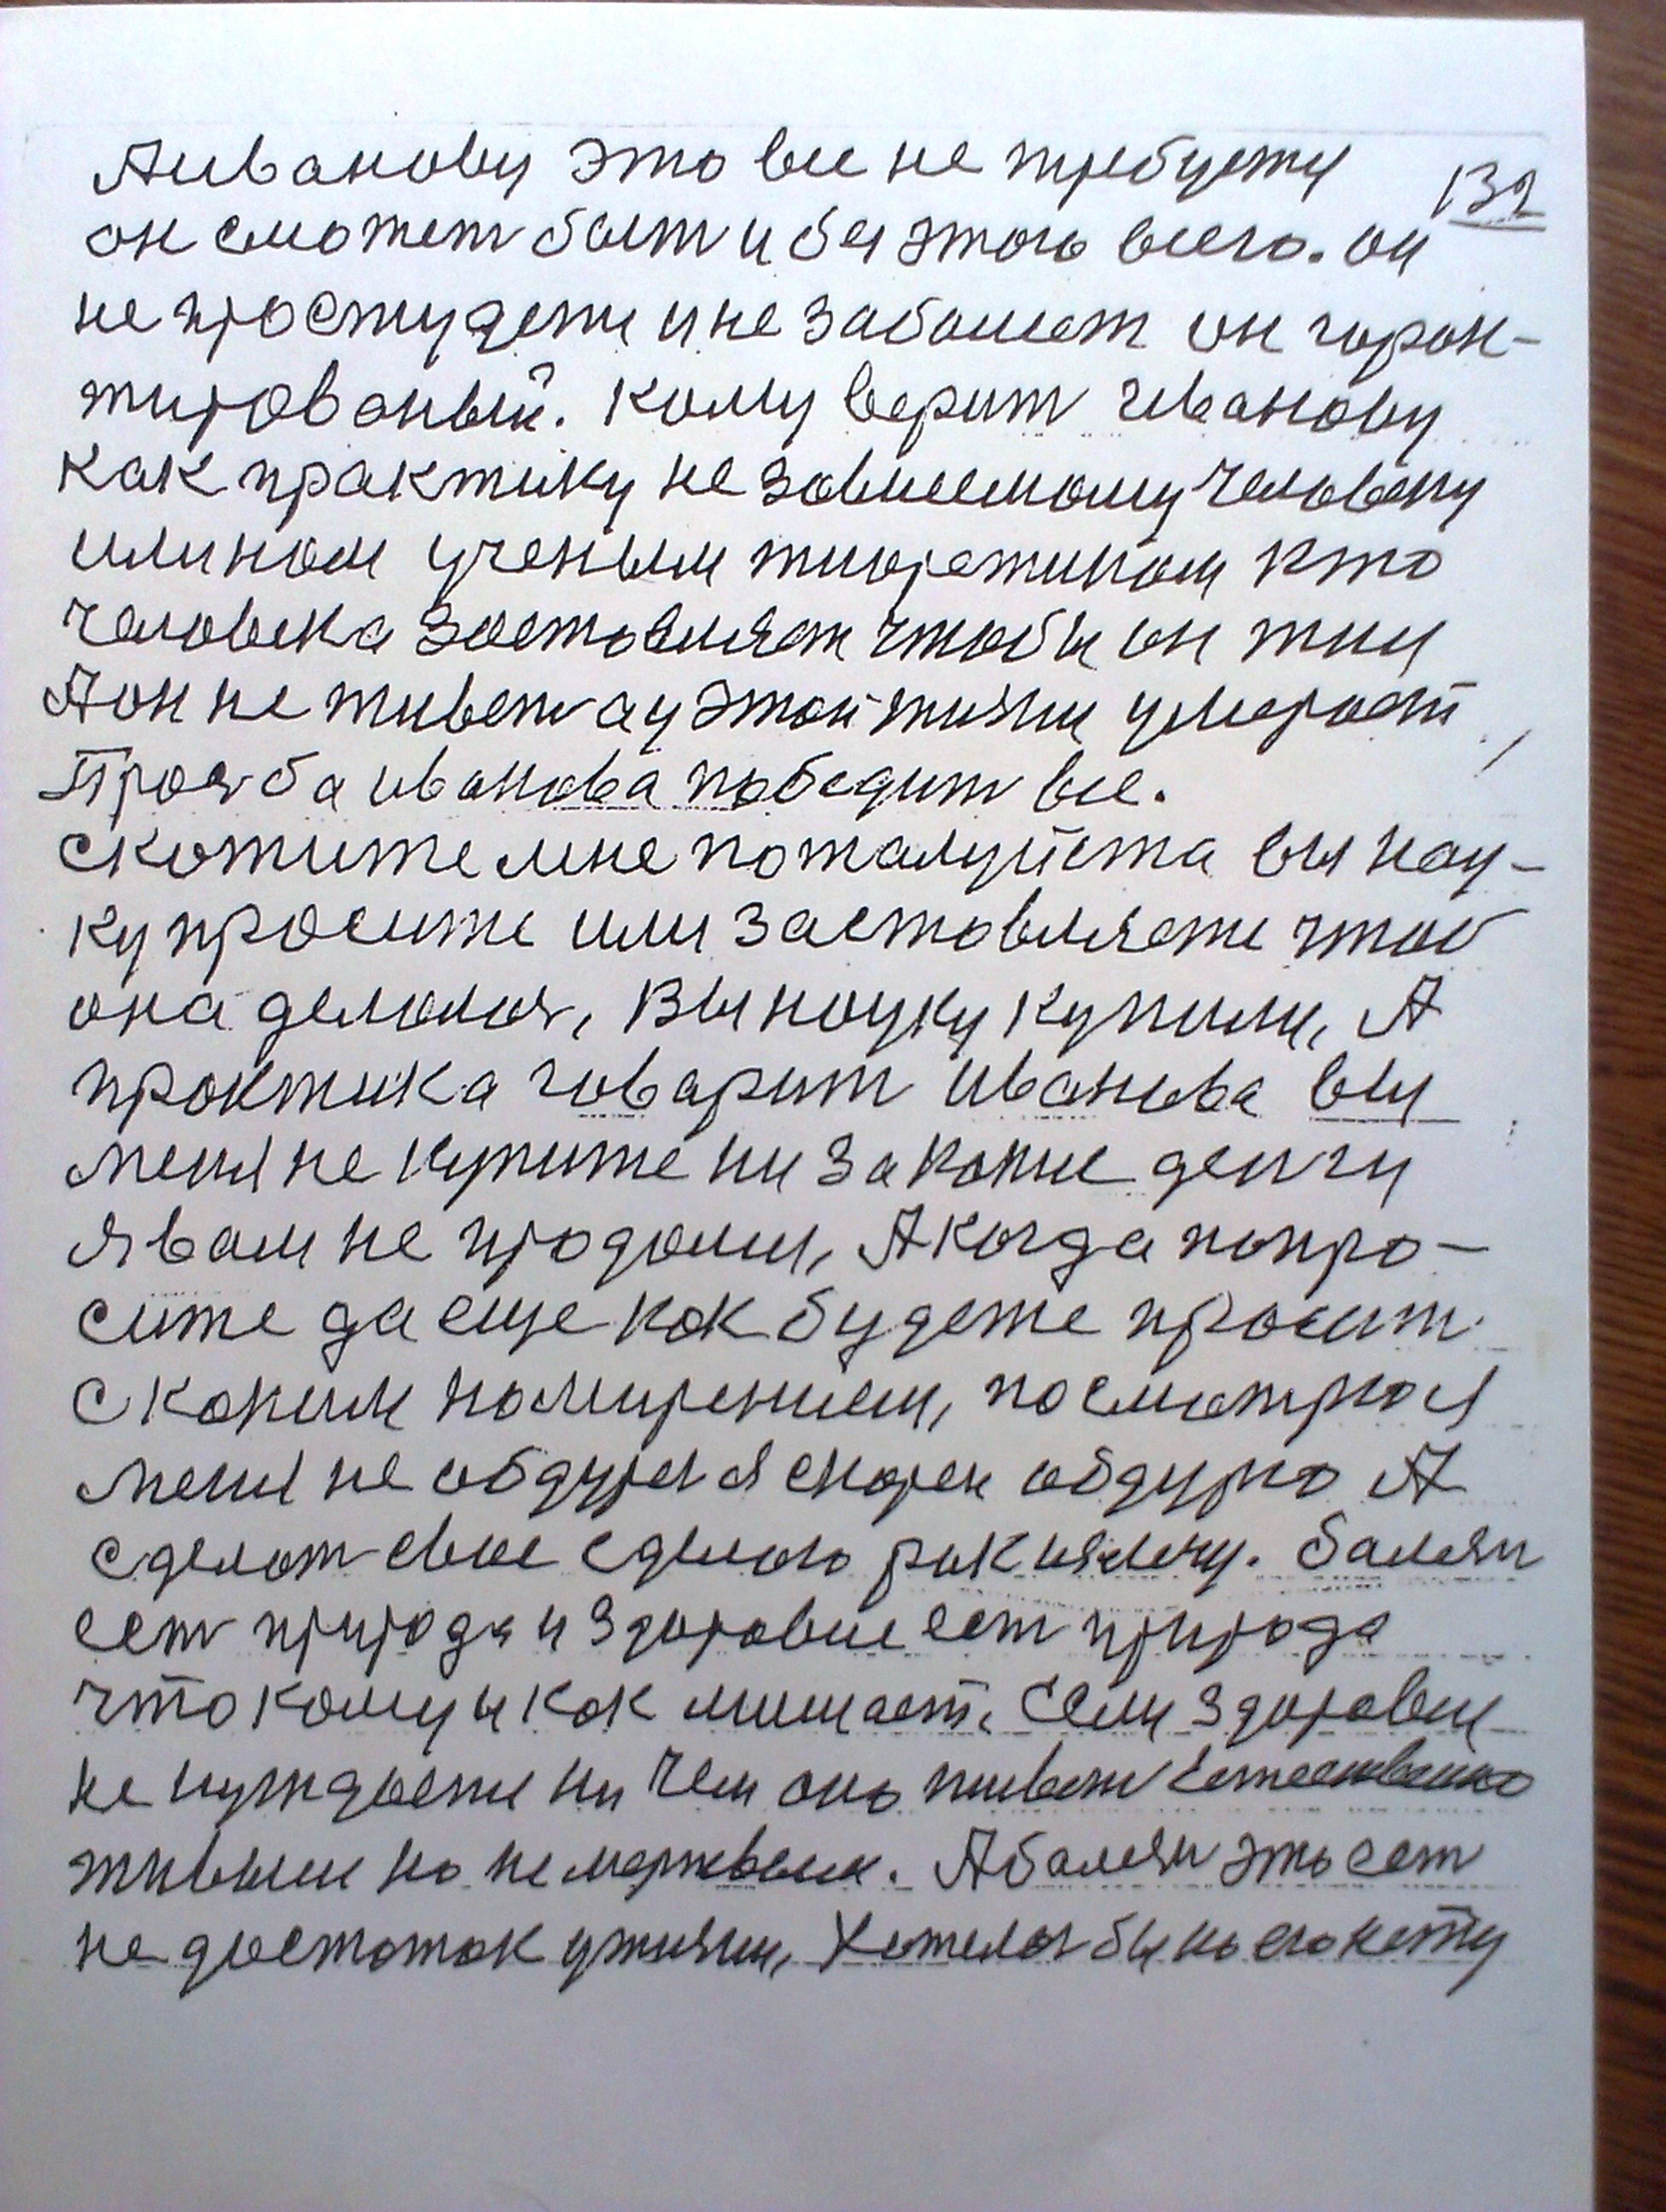 Аиванову это все не требуеты
132
он сможет быт и без этого всего. он
не простудети и не заболеет он горон-
тированый. Кому верит Иванову
как практику не зовисемому человеку
или ном ученым тиоретиком кто
человека зостовляет чтобы он жил
Аон не живет а у этой жизни умерает
Прозба иванова победит все.
скожите мне пожалуйста вы нау-
ку просите или застовляете чтоб
она делолоя, Вы науку купили, А
проктика говарит иванова вы
меня не купите ни за какие денги
я вам не продомы, А когда попро-
сите да еще как будете просит
с каким намирением, посмотрю я
меня не обдурея я скорей обдурю А
сделат свое сделою рак излечу. Балезн
ест природа и здоровие ест природа
что кому и как мишает. Если здоровие
не нуждоети ни чем оно живет Естественно
живым но не мертвым. А балезн это ест
не достоток у жизни, Хотелоя бы но его нету